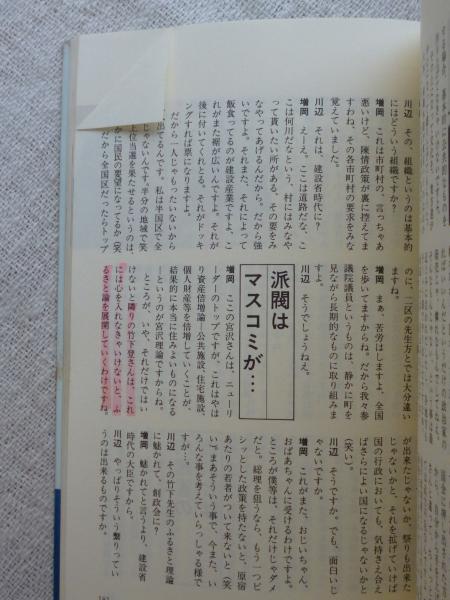 川辺 その、組織というのは基本的
にはどういう組織ですか？
増岡 これは市町村の、言っちゃあ
悪いけど、陳情政策が裏に控えてま
すわね。その各市町村の要求をみな
覚えていました。
川辺 それは、建設省時代に？
増岡 えーえ。ここは道路だな、こ
こは何川だなという、村にはみなや
って貰いたい所がある。その要をみ
なやってあげるんだから。だから強
いですよ。それまた、それによって
飯食ってるのが建設産業ですよ。こ
れがまた裾が広いんですよ。それが
後に付いてくれとる。それがドッキ
ングすれば票になりますよ。
だから一人じゃもったいないから
出てるんです。私は半国区で全
じゃないんです。半分の地域で笑
上位当選を果たせるというのは、
かに国民の要望になってるか（笑
だから全国区だったらトップ
のに、二区の先生方とでは大分違い
ますね。
増岡 まぁ、苦労はしますよ、全国
を歩いてますからね。だから我々参
議院議員というものは、静かに町を
見ながら長期的なものに取り組みま
すよ。
川辺 そうでしょうねえ。
派閥は
マスコミが…
増岡 ここの宮沢さんは、ニューリ
ーダーのトップですが、これはやは
り資産倍増論—公共施設、住宅施設、
個人財産等を倍増していくことが、
結果的に本当に住みよいものになる
—というのが宮沢理論ですからね。
ところが、いや、それだけではい
けないと隣りの竹下登さんは、これ
には心を入れなきゃいけないと、ふ
るさと論を展開していくわけですね。
が出来たじゃないか。祭りも出来た
じゃないかと、それを拡げていけば
国の行政においても、気持さえ合え
ばさらによい国になるじゃないかと
（笑い）。
川辺 そうですか。でも、面白いじ
ゃないですか。
増岡 これがまた、おじいちゃん、
おばあちゃんに受けるわけですよ。
ところが僕等は、それだけじゃダメ
だと、総理を狙うなら、もう一つピ
シッとした政策を持たないと、原宿
あたりの若者がついて来ないと（笑
い）。まあそういう事で、今また、い
ろんな事を考えていらっしゃる様で
すが…。
川辺 その竹下先生のふるさと理論
に魅かれて、創政会に？
増岡 魅かれてと言うより、建設省
時代の大臣ですから。
川辺 やっぱりそういう繋りってい
うのは出来るものですか。